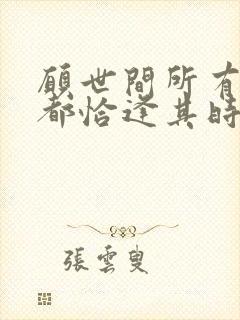 願世間所有
都恰逢其時
張雲叟